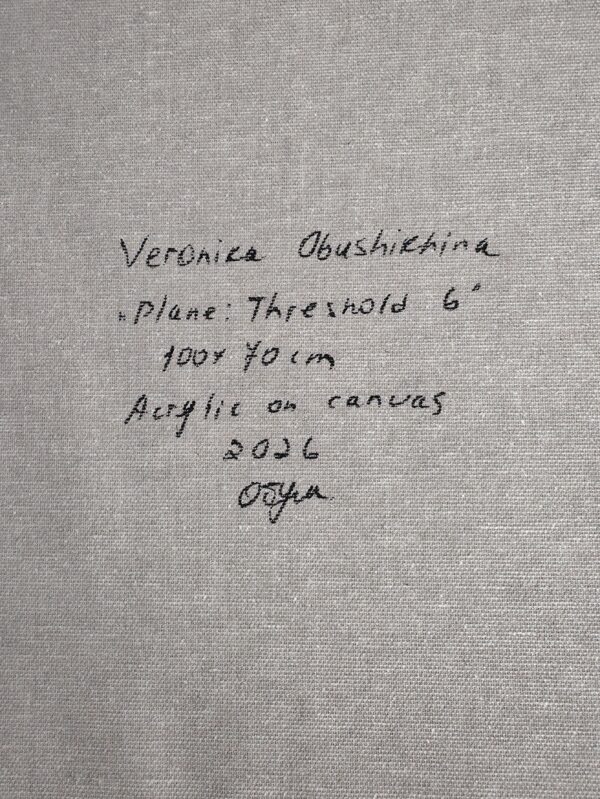 Veronica Obushikhina
"Plane: Threshold 6"
100x70cm
Acrylic on canvas
2026